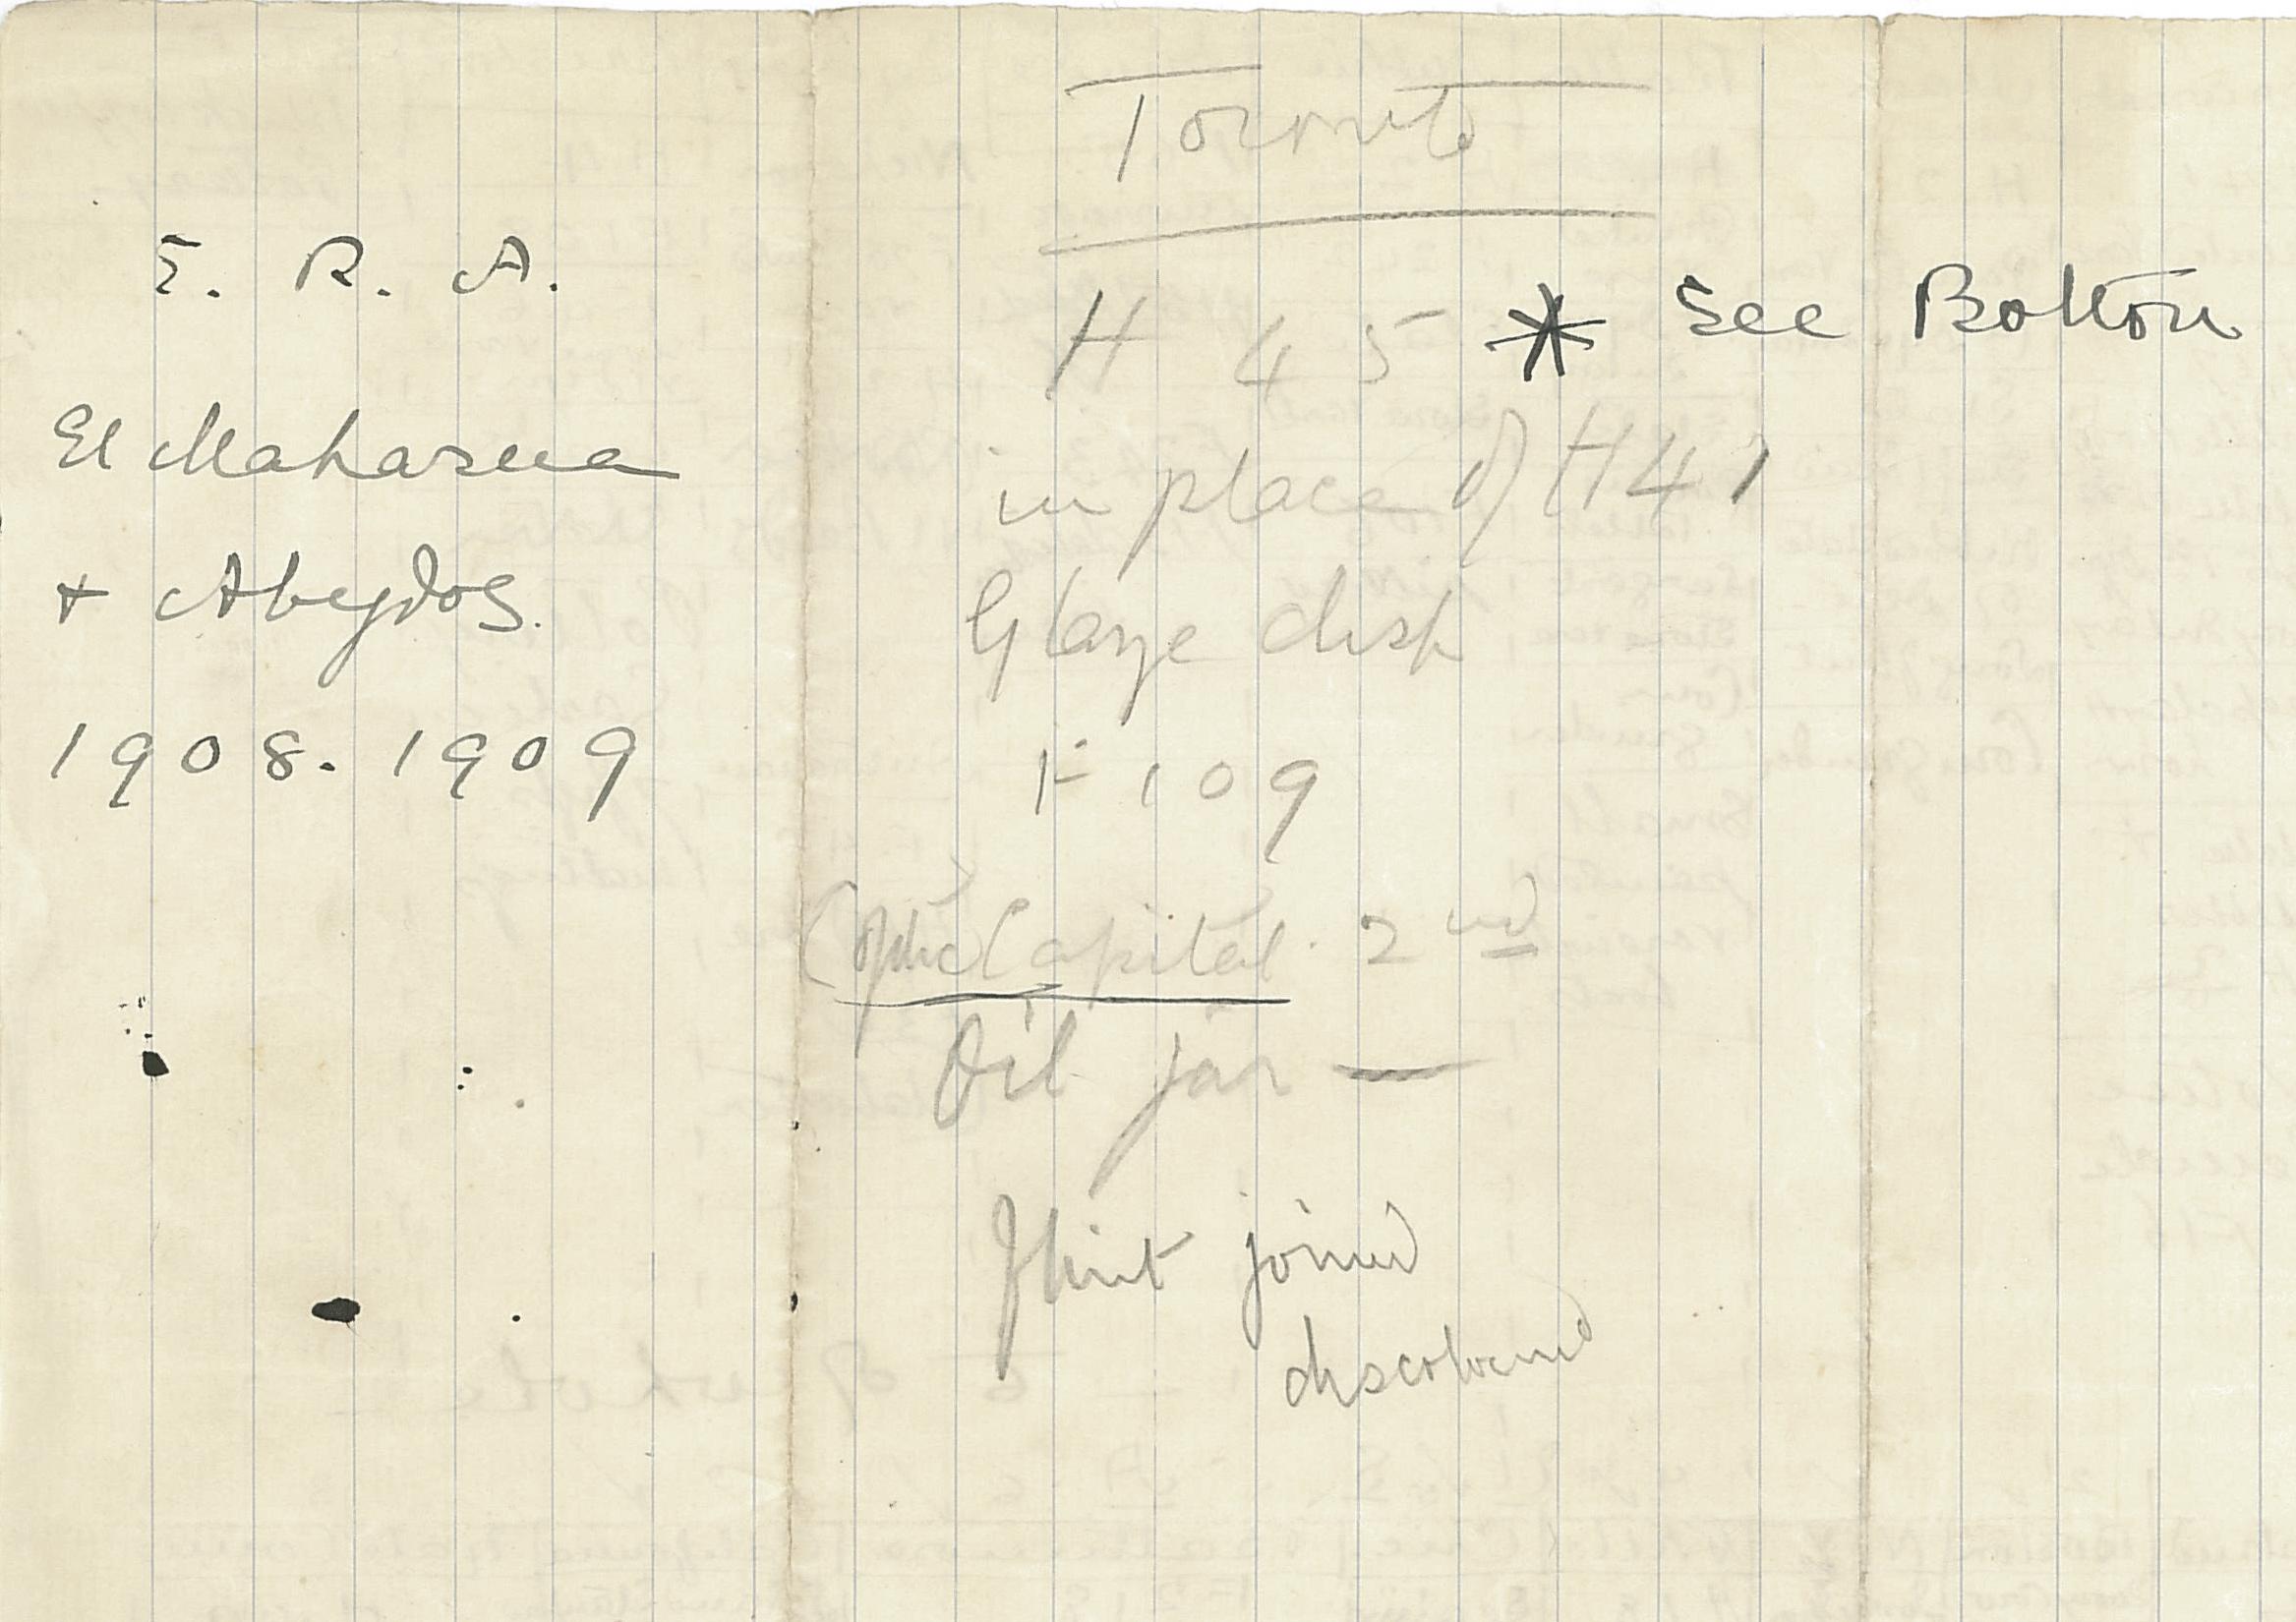 E. R. A.
El Mahasna
+ Abydos.
1908. 1909
Toronto
H 45 * See Bolton
in place of H41
Glaze dish
F 109
Coptic Capital. 2nd
Oil jar —
flint joined
discoloured